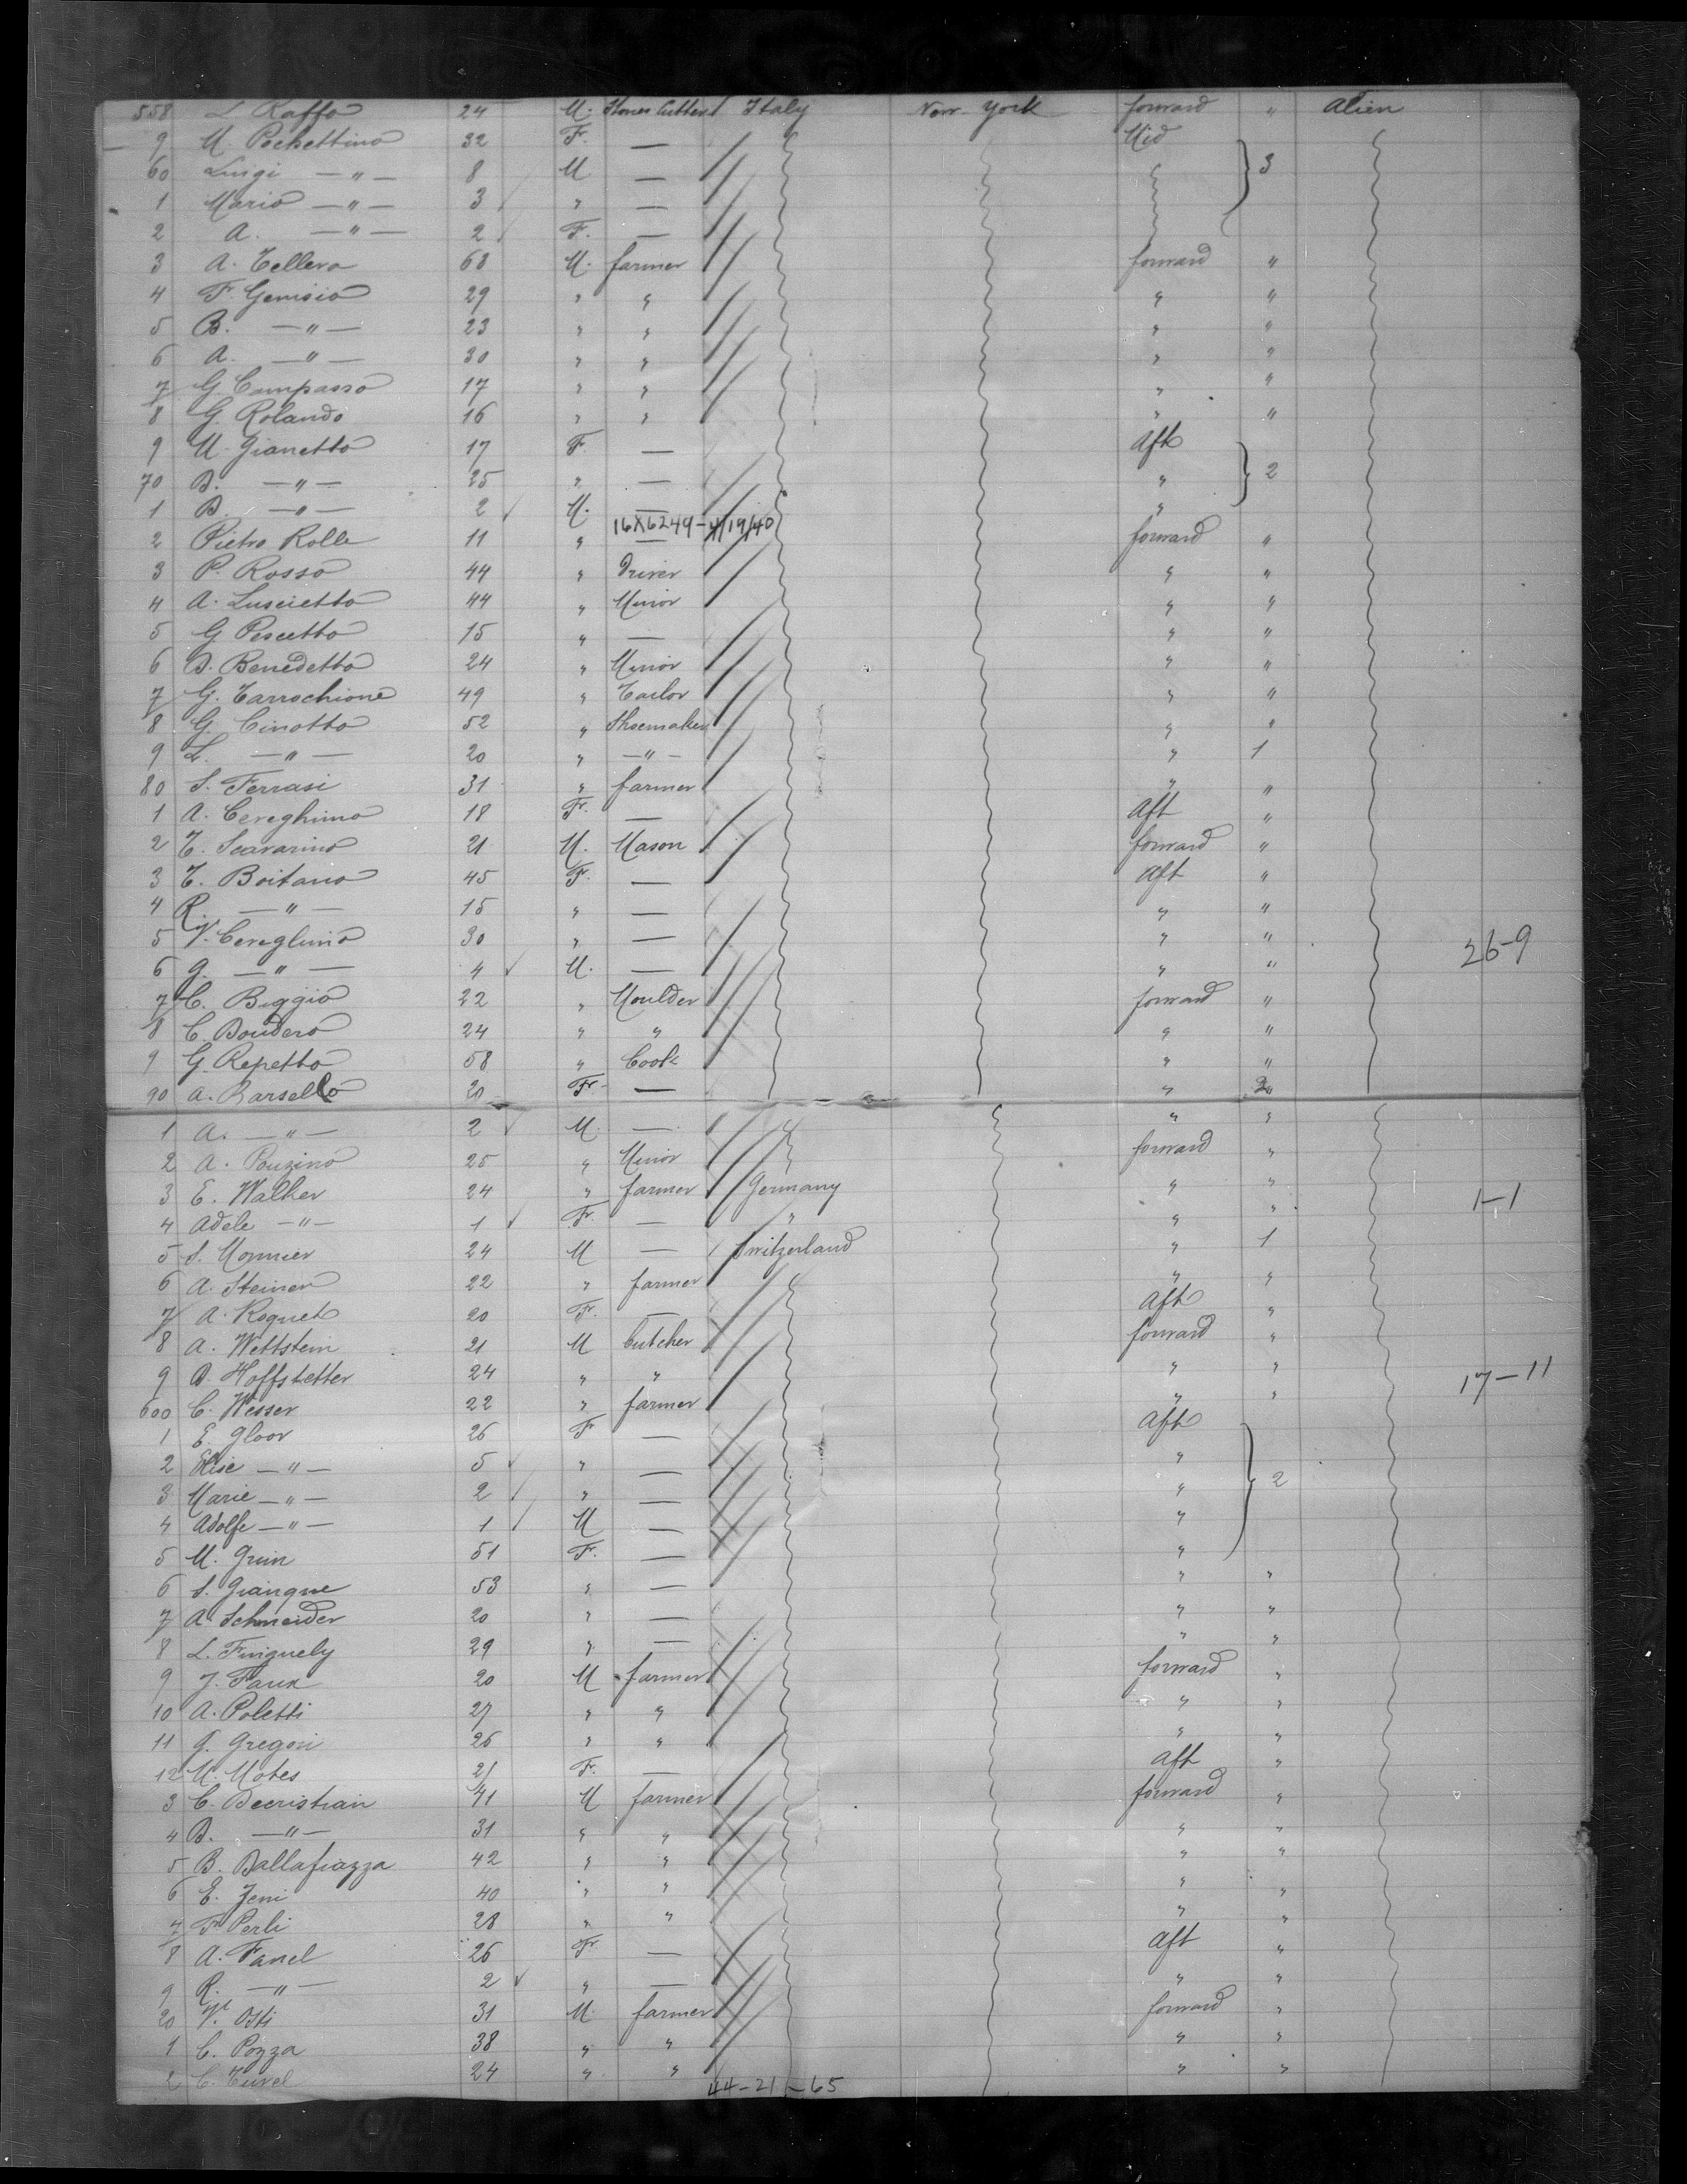 558 L Raffo 24 M. Stones Cutter Italy New York forward " Alien
9 M. Pochettino 32 F. — Mid
60 Luigi — " — 8 M — } 3
1 Mario — " — 3 " —
2 A. — " — 2 F. —
3 A. Tellero 68 M. farmer forward "
4 F. Genisio 29 " " " "
5 B. — " — 23 " " " "
6 A. — " — 30 " " " "
7 G. Campasso 17 " " " "
8 G. Rolando 16 " " " "
9 M. Gianetto 17 F. — aft
70 D. — " — 25 " — " } 2
1 B. — " — 2 M. — "
16X6249-4/19/40
2 Pietro Rolle 11 " — forward "
3 P. Rosso 44 " Driver " "
4 A. Luscietto 44 " Minor " "
5 G Pescetto 15 " — " "
6 D. Benedetto 24 " Minor " "
7 G. Tarrochione 49 " Tailor " "
8 G. Cinotto 52 " Shoemaker " "
9 L. — " — 20 " — " — " 1
80 S. Ferrasi 31 " farmer " "
1 A. Cereghino 18 F. — aft "
2 T. Scavarino 21 M. Mason forward "
3 T. Boitano 45 F. — aft "
4 R. — " — 15 " — " "
5 V. Cereghino 30 " — " " 26-9
6 G. — " — 4 M. — " "
7 C. Biggio 22 " Moulder forward "
8 C. Boudero 24 " " " "
9 G. Repetto 58 " Cook " "
90 A. Barsello 20 F. — " 2
1 A. — " — 2 M. — " "
2 A. Pouzino 25 " Minor forward "
3 E. Walker 24 " farmer Germany " " 1-1
4 Adele — " — 1 F. — " " "
5 S. Monnier 24 M — Switzerland " 1
6 A. Steiner 22 " farmer " "
7 A. Roquet 20 F. — aft "
8 A. Wettstein 21 M butcher forward "
9 B. Hoffstetter 24 " " " " 17-11
600 C. Wesser 22 " farmer " "
1 E. Gloor 26 F — aft
2 Elise — " — 5 " — "
3 Marie — " — 2 " — " } 2
4 Adolfe — " — 1 M — "
5 M. Grun 51 F. — "
6 S. Giangue 53 " — " "
7 A. Schneider 20 " — " "
8 L. Finguely 29 " — " "
9 J. Faux 20 M farmer forward "
10 A. Poletti 27 " " " "
11 G. Gregori 26 " " " "
12 M. Motes 21 F. — aft "
3 C. Decristian 41 M farmer forward "
4 B. — " — 31 " " " "
5 B. Dallafiazza 42 " " " "
6 E. Jeni 40 " " " "
7 F. Perli 28 " " " "
8 A. Fanel 26 F — aft "
9 R. — " — 2 " — " "
20 V. Osti 31 M. farmer forward "
1 C. Pozza 38 " " " "
2 C. Turel 24 " " " "
44-21-65